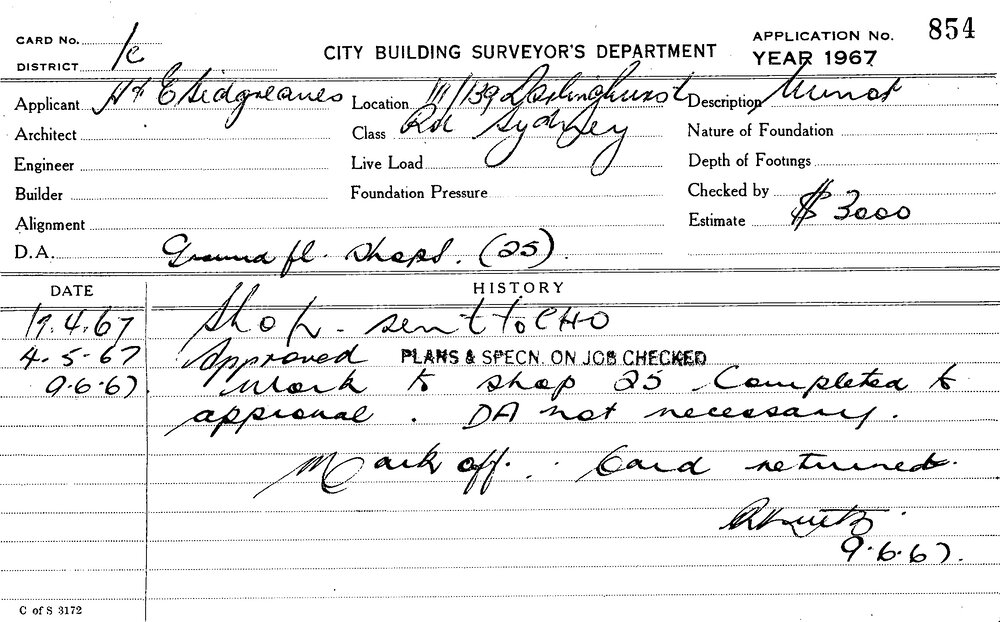 CARD No.
DISTRICT 1c
CITY BUILDING SURVEYOR'S DEPARTMENT
APPLICATION No. 854
YEAR 1967
Applicant H & E Sidgreaves Location 111/139 Darlinghurst Description Minor
Architect Class Rd Sydney Nature of Foundation
Engineer Live Load Depth of Footings
Builder Foundation Pressure Checked by
Alignment Estimate $ 3000
D.A. Ground fl. shops. (25).
DATE HISTORY
17.4.67 Shop - sent to CHO
4.5.67 Approved PLANS & SPECN. ON JOB CHECKED
9.6.67. Work to shop 25 Completed to
approval. DA not necessary.
Mark off. Card returned.
9.6.67.
C of S 3172